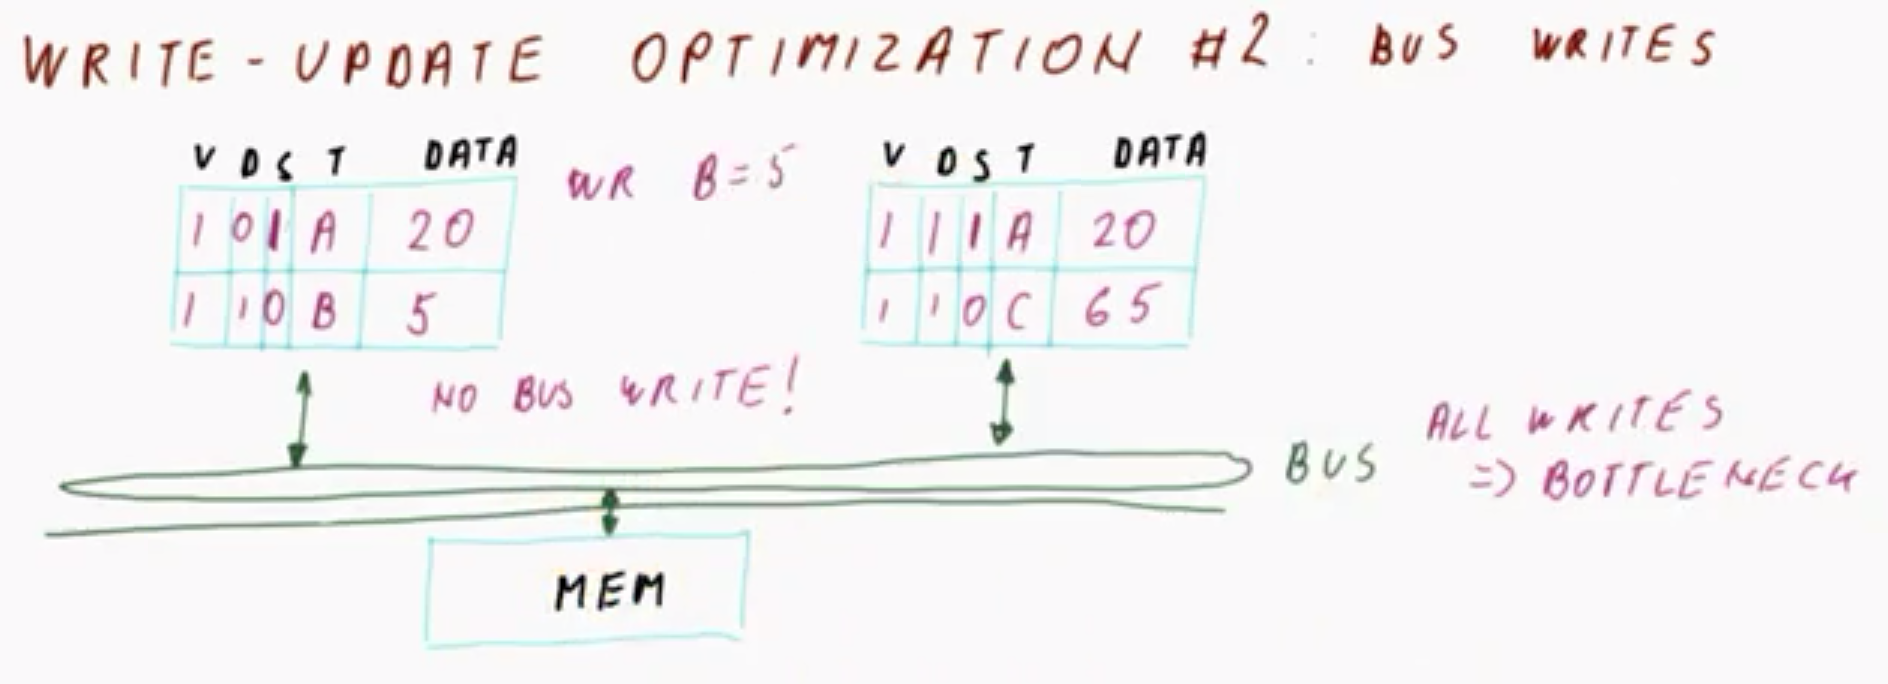 WRITE-UPDATE OPTIMIZATION #2: BUS WRITES
V D S T DATA
1 0 1 A 20
1 1 0 B 5
WR B=5
V D S T DATA
1 1 1 A 20
1 1 0 C 65
NO BUS WRITE!
BUS
ALL WRITES
=> BOTTLENECK
MEM